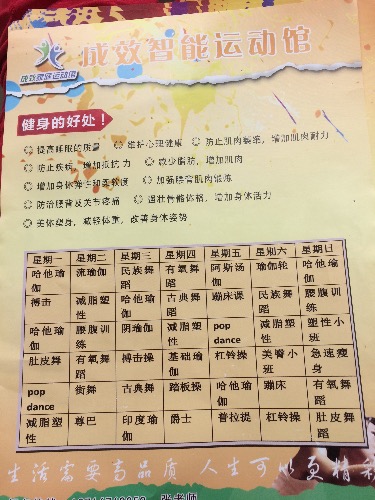 成效智能运动馆
成效智能运动馆
健身的好处！
提高睡眠的质量 维护心理健康 防止肌肉萎缩，增加肌肉耐力
防止疾病，增加抵抗力 减少脂肪，增加肌肉
增加身体弹性和柔软度 加强腰背肌肉锻炼
防治腰背及关节疼痛 强壮骨骼体格，增加身体活力
美体塑身，减轻体重，改善身体姿势
星期一 星期二 星期三 星期四 星期五 星期六 星期日
哈他瑜伽 流瑜伽 民族舞蹈 有氧舞蹈 阿斯汤伽 瑜伽轮 哈他瑜伽
搏击 减脂塑性 哈他瑜伽 古典舞蹈 蹦床课 民族舞蹈 腰腹训练
哈他瑜伽 腰腹训练 阴瑜伽 减脂塑性 pop dance 减脂塑性 塑性小班
肚皮舞 有氧舞蹈 搏击操 基础瑜伽 杠铃操 美臀小班 急速瘦身
pop dance 街舞 古典舞 踏板操 哈他瑜伽 蹦床 有氧舞蹈
减脂塑性 尊巴 印度瑜伽 爵士 普拉提 杠铃操 肚皮舞蹈
生活需要高品质 人生可以更精彩
张老师